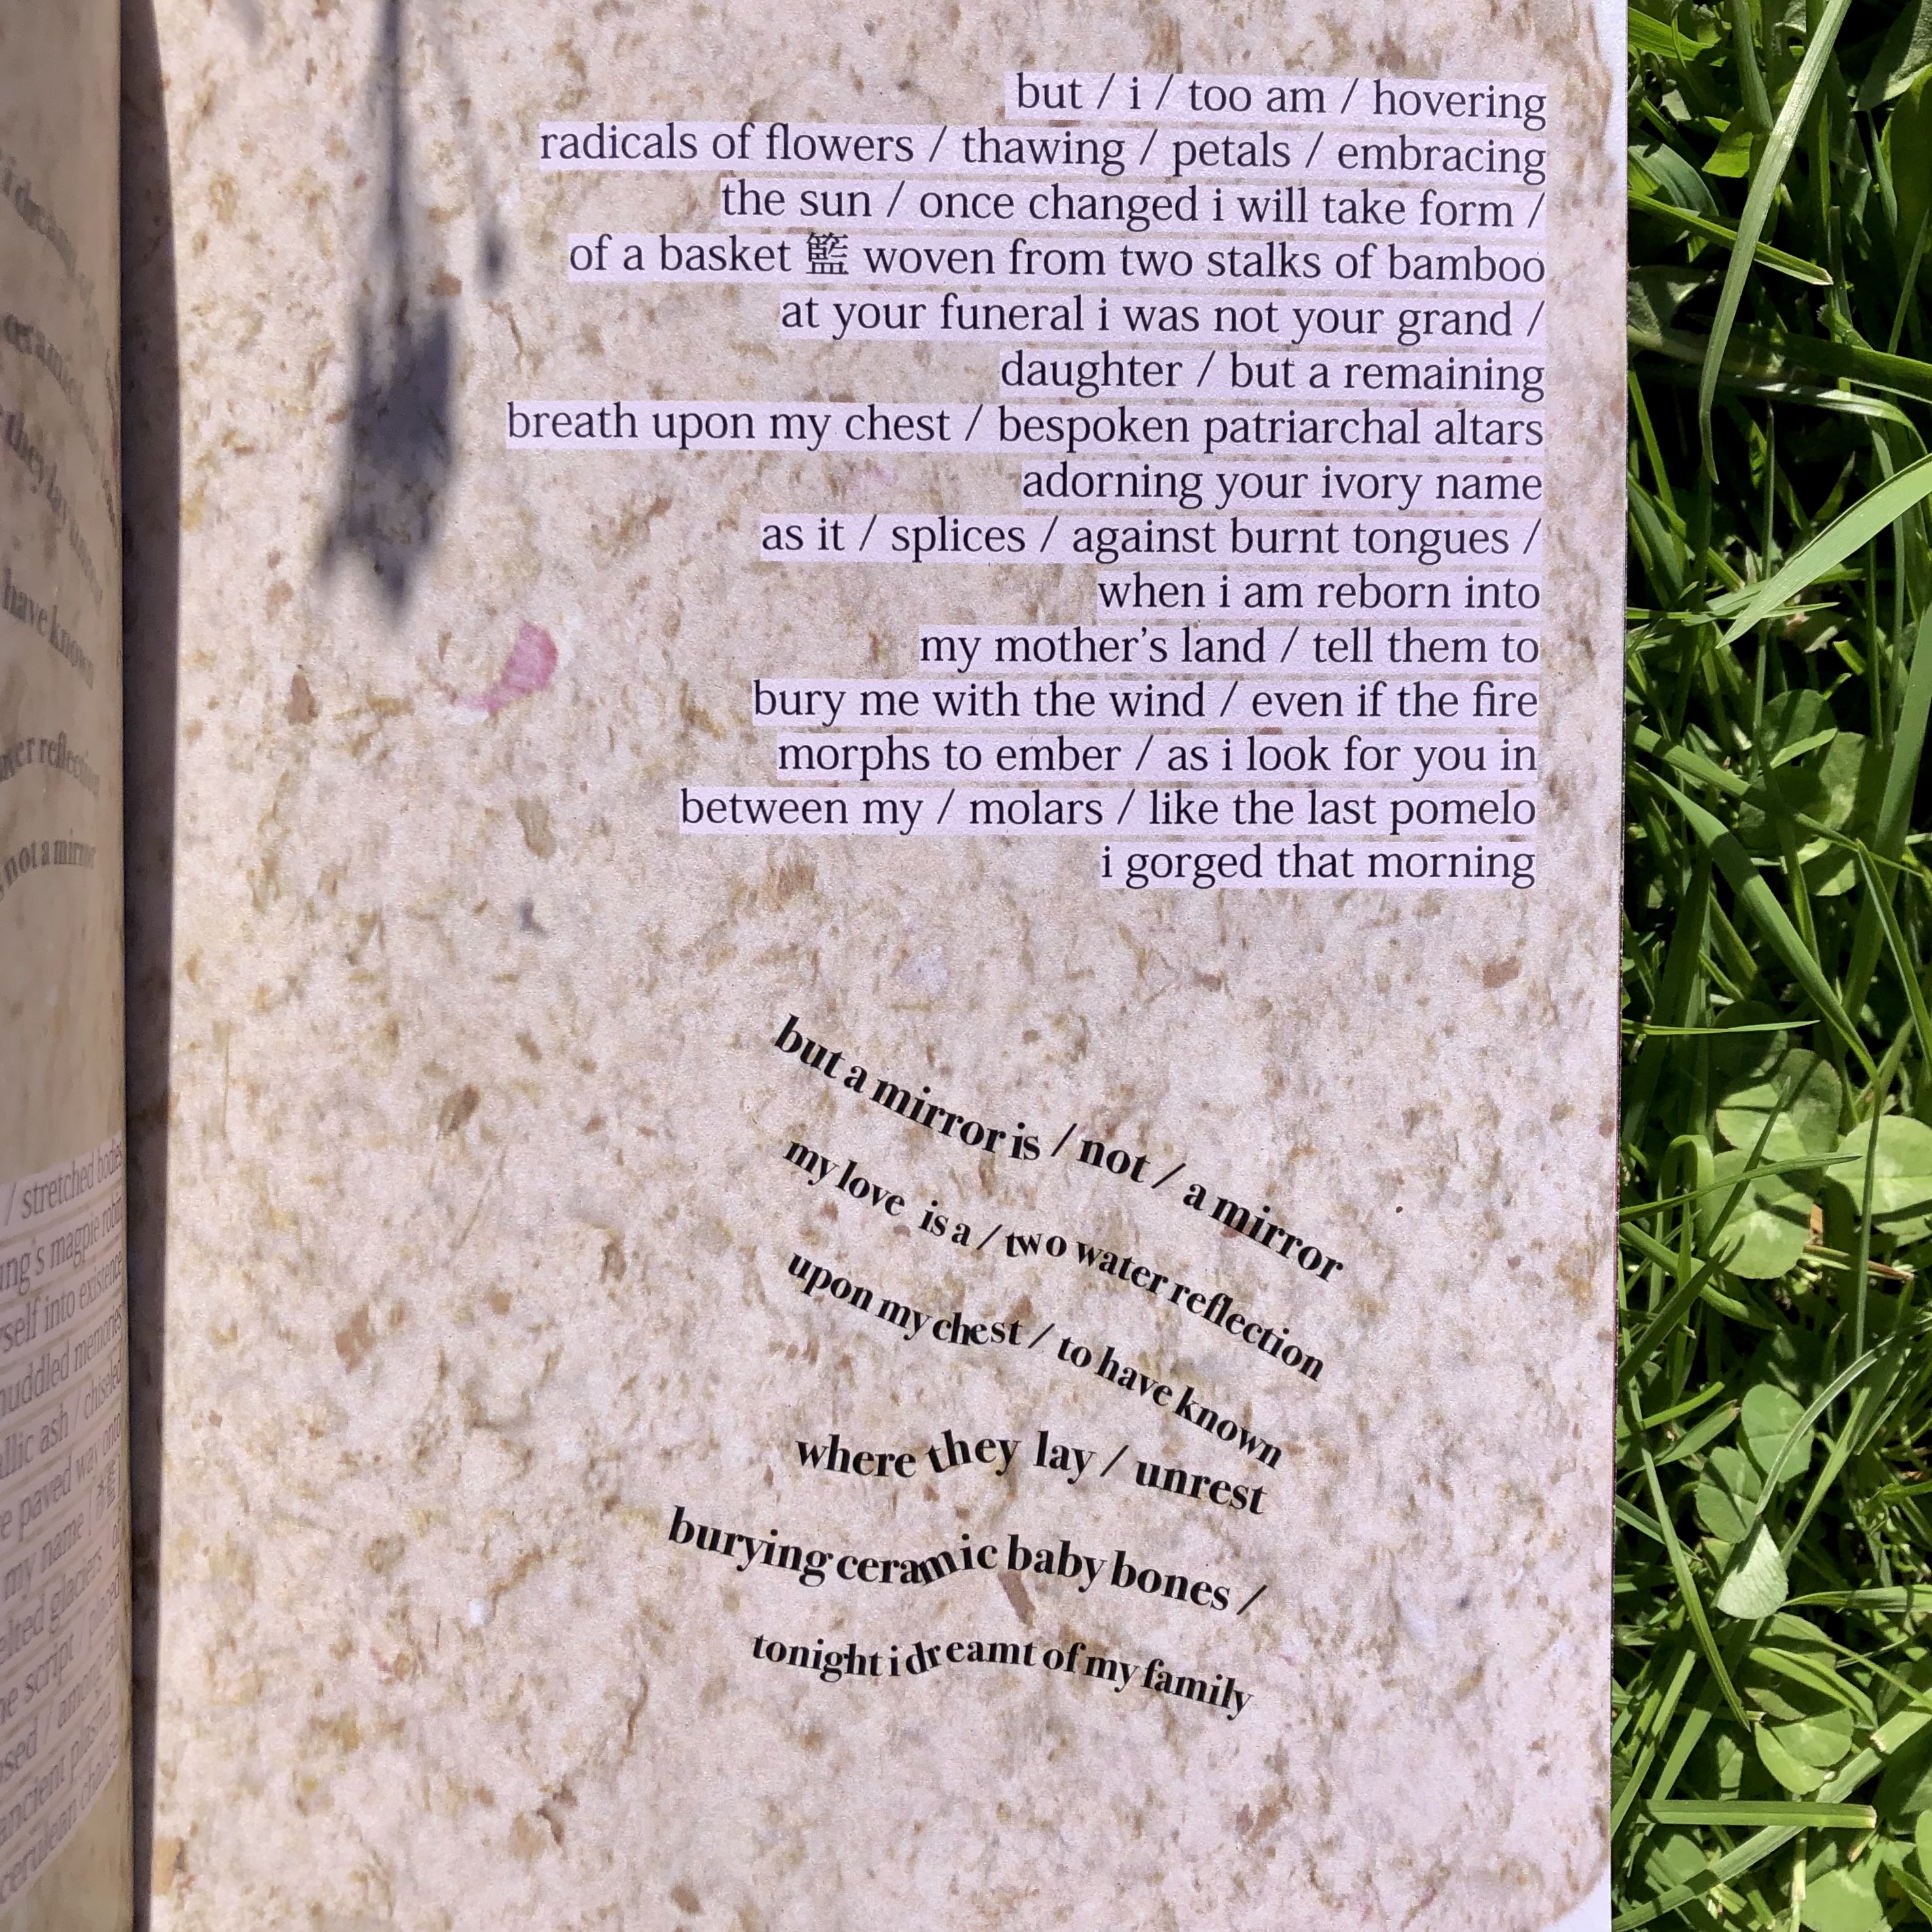 i
ceramic
they lay
have known
reflection
not a mirror
/ stretched bodies
magpie robin
into existence
memories
ash / chiseled
paved way onto
my name
glaciers of
script / placed
ancient plasma
cerulean
but / i / too am / hovering
radicals of flowers / thawing / petals / embracing
the sun / once changed i will take form /
of a basket 籃 woven from two stalks of bamboo
at your funeral i was not your grand /
daughter / but a remaining
breath upon my chest / bespoken patriarchal altars
adorning your ivory name
as it / splices / against burnt tongues /
when i am reborn into
my mother’s land / tell them to
bury me with the wind / even if the fire
morphs to ember / as i look for you in
between my / molars / like the last pomelo
i gorged that morning
but a mirror is / not / a mirror
my love is a / two water reflection
upon my chest / to have known
where they lay / unrest
burying ceramic baby bones /
tonight i dreamt of my family